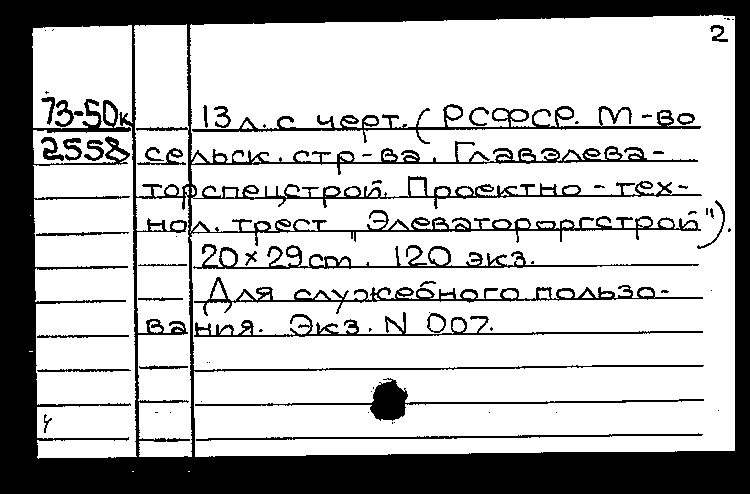 2
73-50к 13 л. с черт. (РСФСР. М-во
2558 сельск. стр-ва. Главэлева-
торспецстрой. Проектно-тех-
нол. трест "Элеватороргстрой").
20×29 cm. 120 экз.
Для служебного пользо-
вания. Экз. N 007.